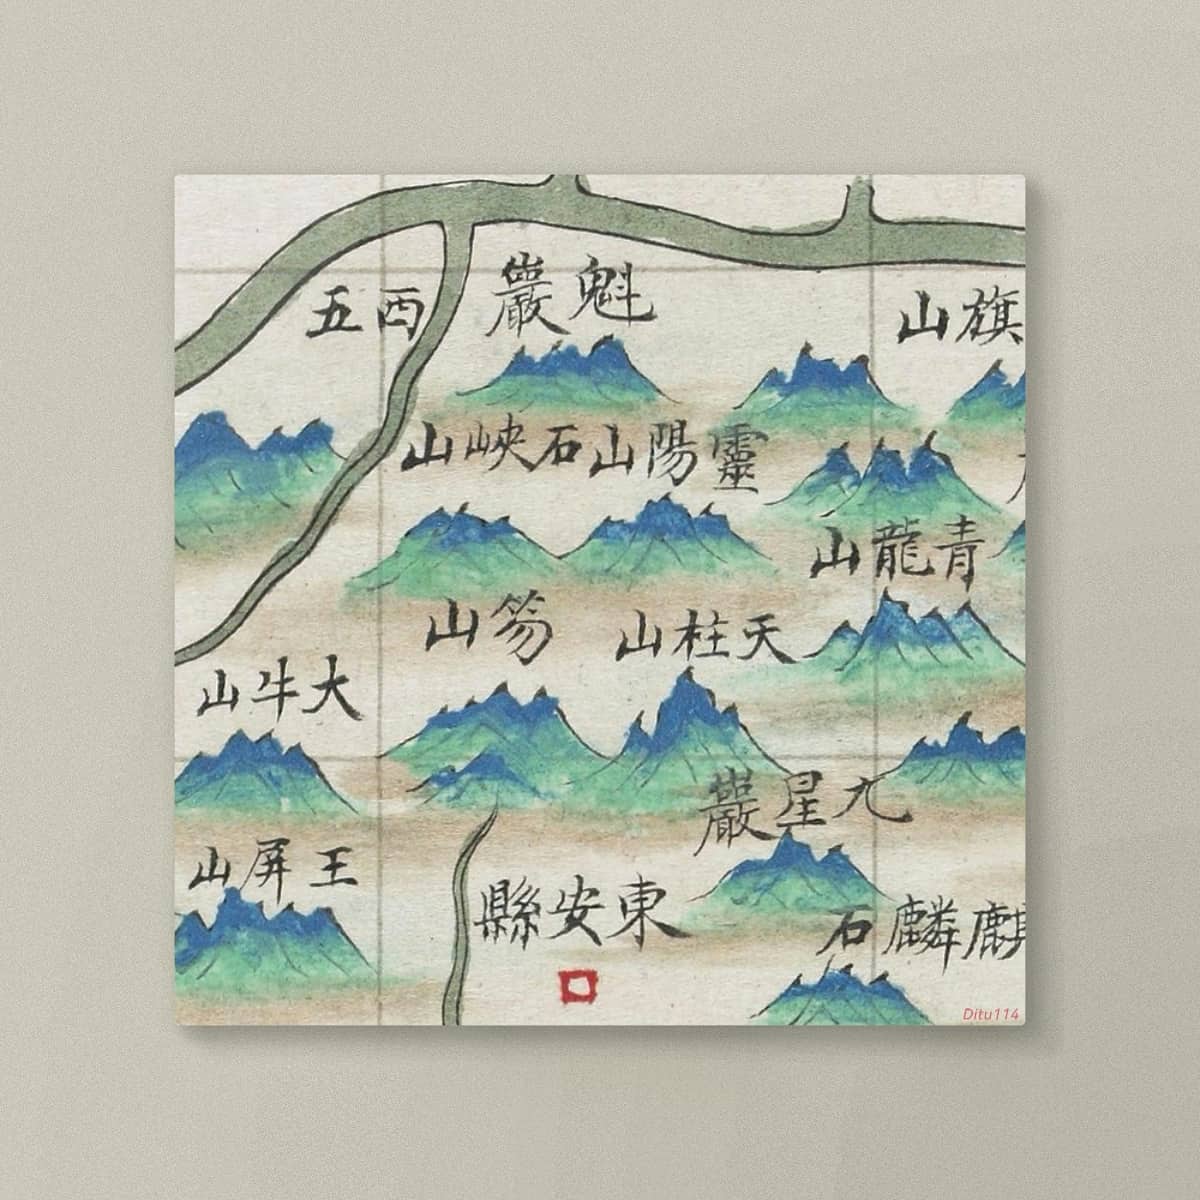 魁巖
西五
旗山
靈陽山
石峽山
青龍山
笏山
天柱山
大牛山
九星巖
王屏山
東安縣
麒麟石
Ditu114